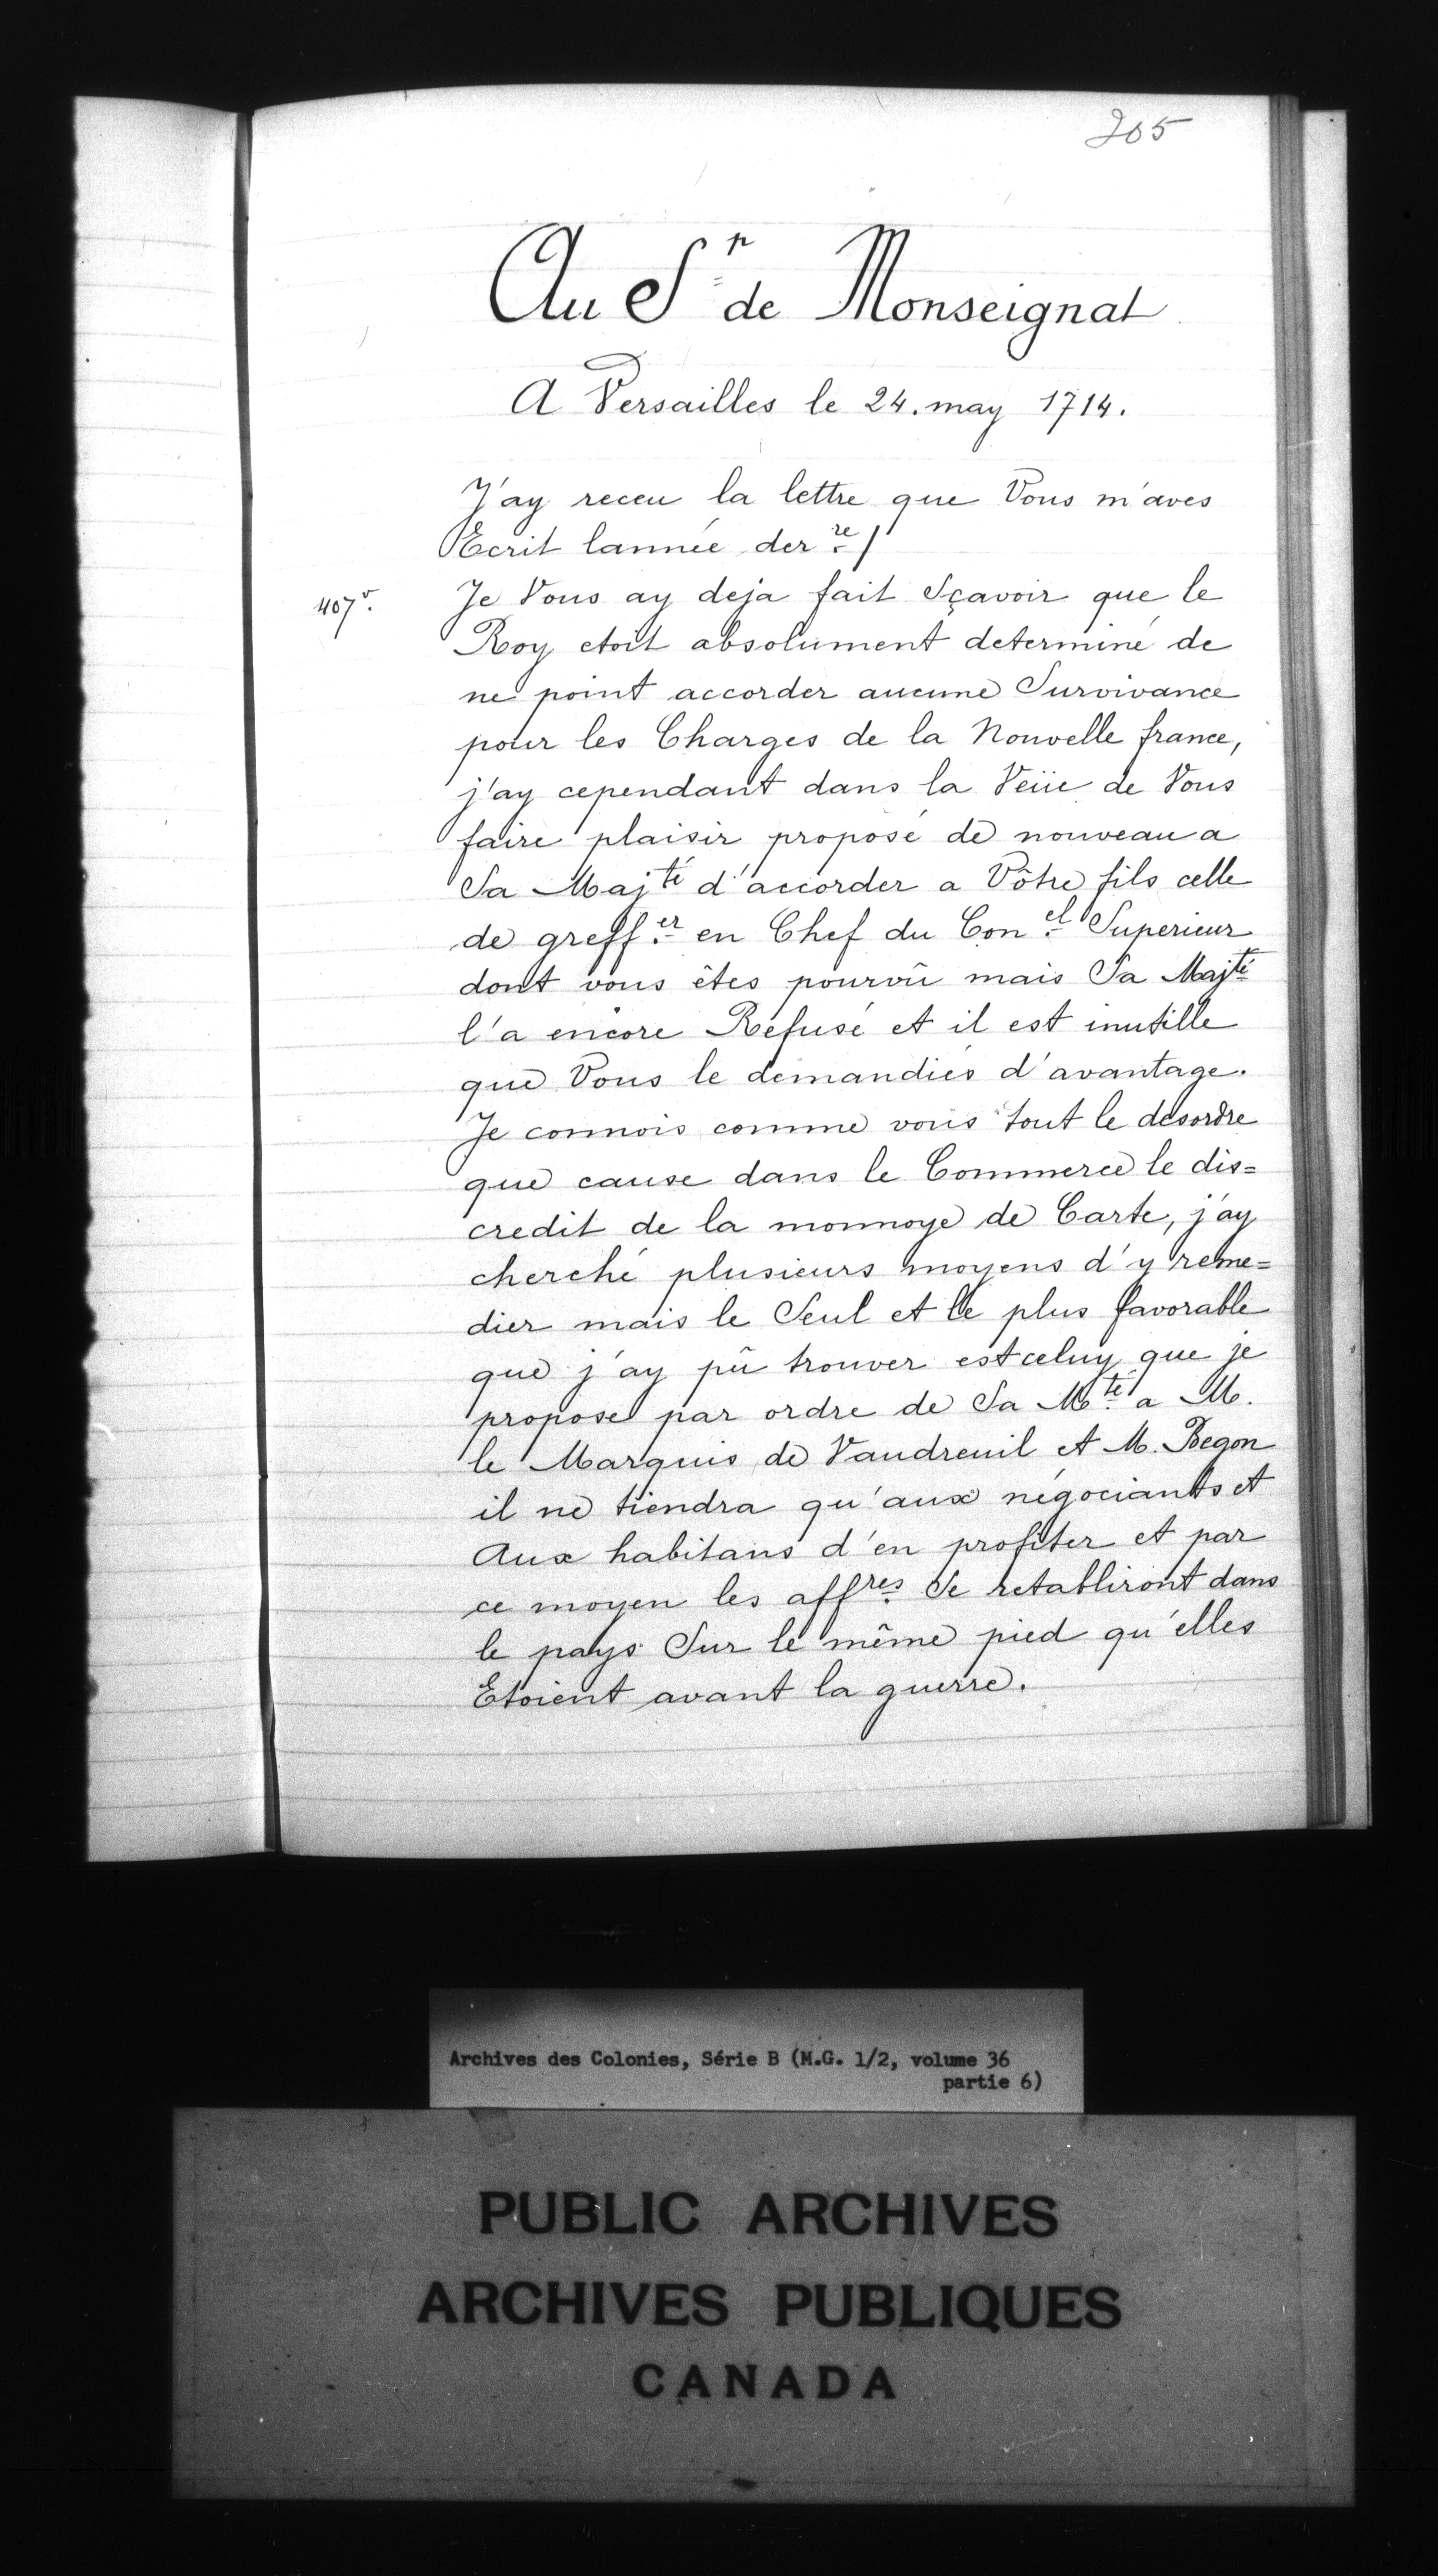 205
Au S.r de Monseignat
A Versailles le 24. may 1714.
J'ay receu la lettre que Vous m'aves
Ecrit lannée der.re /
407v.
Je Vous ay deja fait Sçavoir que le
Roy etoit absolument determiné de
ne point accorder aucune Survivance
pour les Charges de la Nouvelle france,
j'ay cependant dans la Veüe de Vous
faire plaisir proposé de nouveau a
Sa Maj.té d'accorder a Vôtre fils celle
de greff.er en Chef du Con.el Superieur
dont vous êtes pourvû mais Sa Maj.té
l'a encore Refusé et il est inutille
que Vous le demandiés d'avantage.
Je connois comme vous tout le desordre
que cause dans le Commerce le dis=
credit de la monnoye de Carte, j'ay
cherché plusieurs moyens d'y reme=
dier mais le Seul et le plus favorable
que j'ay pû trouver est celuy que je
propose par ordre de Sa M.té a M.
le Marquis de Vaudreuil et M. Begon
il ne tiendra qu'aux négociants et
Aux habitans d'en profiter et par
ce moyen les aff.res Se retabliront dans
le pays Sur le même pied qu'elles
Etoient avant la guerre.
Archives des Colonies, Série B (M.G. 1/2, volume 36
partie 6)
PUBLIC ARCHIVES
ARCHIVES PUBLIQUES
CANADA